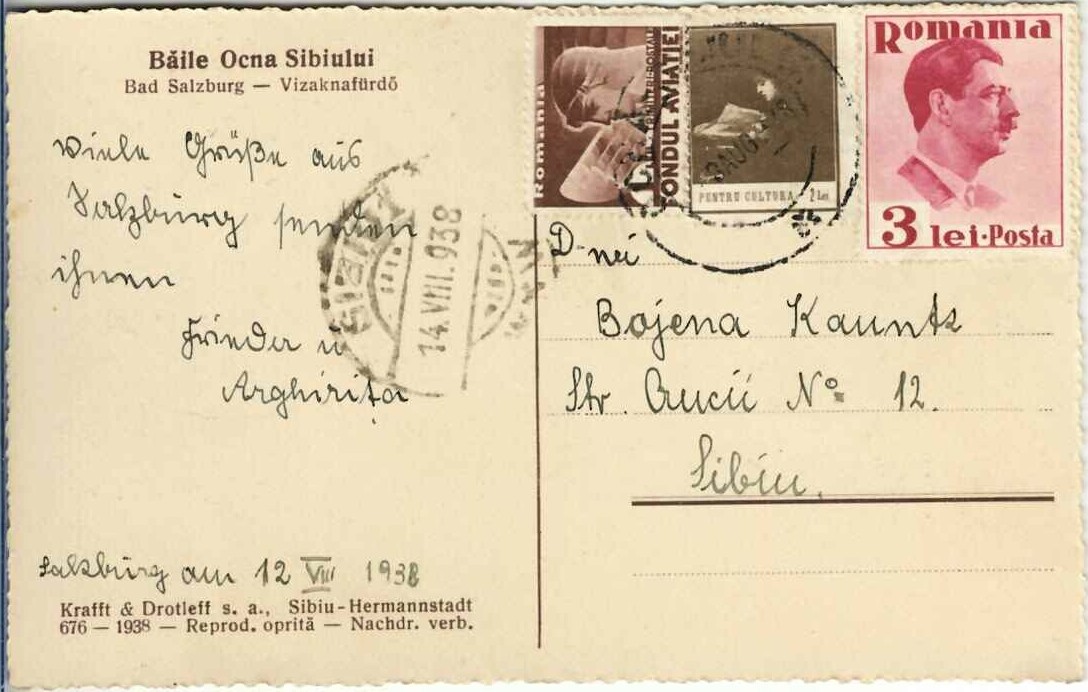 Băile Ocna Sibiului
Bad Salzburg — Vizaknafürdő
Viele Grüße aus
Salzburg senden
ihnen
Frieda u
Arghirița
Salzburg am 12 VIII 1938
Krafft & Drotleff s. a., Sibiu-Hermannstadt
676 — 1938 — Reprod. oprită — Nachdr. verb.
14.VIII.938
Romania
FONDUL AVIATIEI
PENTRU CULTURA 2 Lei
Romania
3 lei·Posta
Dnei
Bojena Kauntz
Str. Crucii No 12.
Sibiu.